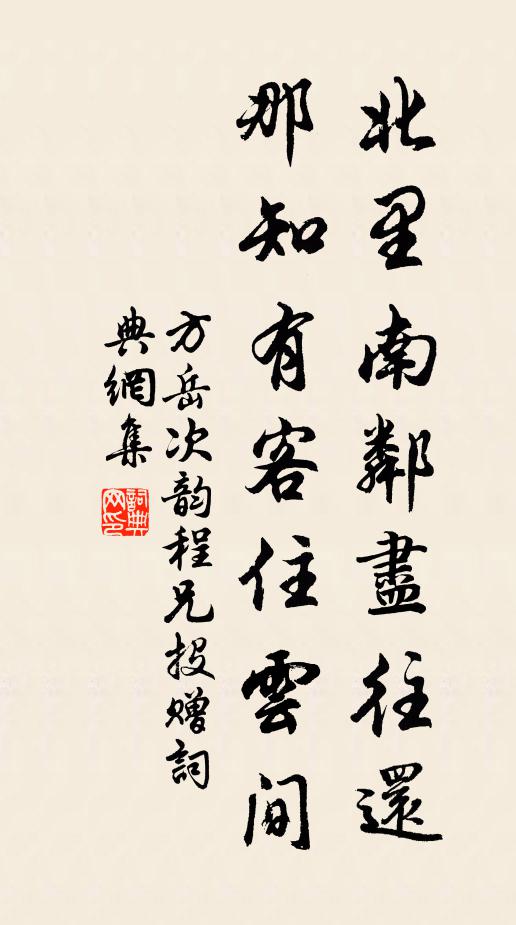 北里南鄰盡往還
那知有客住雲間
方岳次韵程兄投赠詞
典網集
詞典
网印